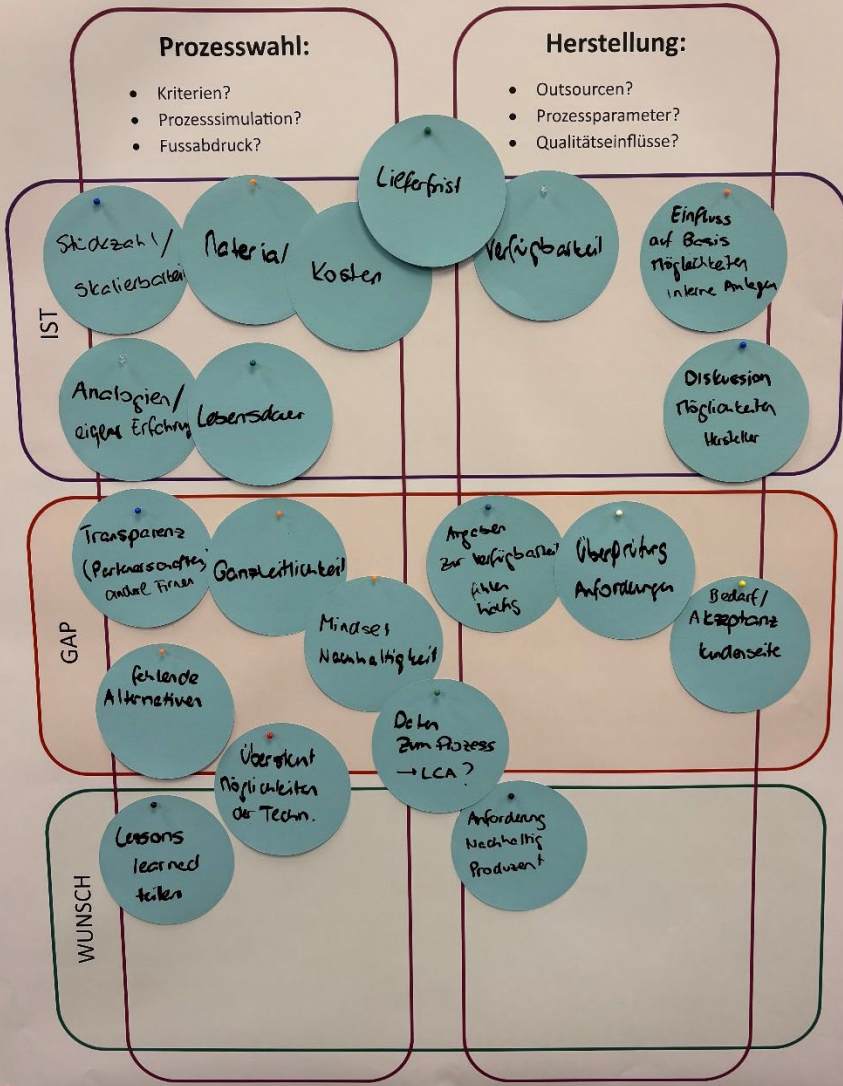 Prozesswahl:
• Kriterien?
• Prozesssimulation?
• Fussabdruck?
Herstellung:
• Outsourcen?
• Prozessparameter?
• Qualitätseinflüsse?
IST
Stückzahl/
Skalierbarkeit
Material
Kosten
Lieferfrist
Verfügbarkeit
Einfluss
auf Basis
Möglichkeiten
interne Anlagen
Analogien/
eigene Erfahrung
Lebensdauer
Diskussion
Möglichkeiten
Hersteller
GAP
Transparenz
(Partnerschaften,
andere Firmen
Ganzheitlichkeit
Mindset
Nachhaltigkeit
Angaben
zur Verfügbarkeit
fehlen
häufig
Überprüfung
Anforderungen
Bedarf/
Akzeptanz
Kundenseite
fehlende
Alternativen
Übersicht
Möglichkeiten
der Techn.
Daten
zum Prozess
→ LCA?
WUNSCH
Lessons
learned
teilen
Anforderung
Nachhaltig
Produzent